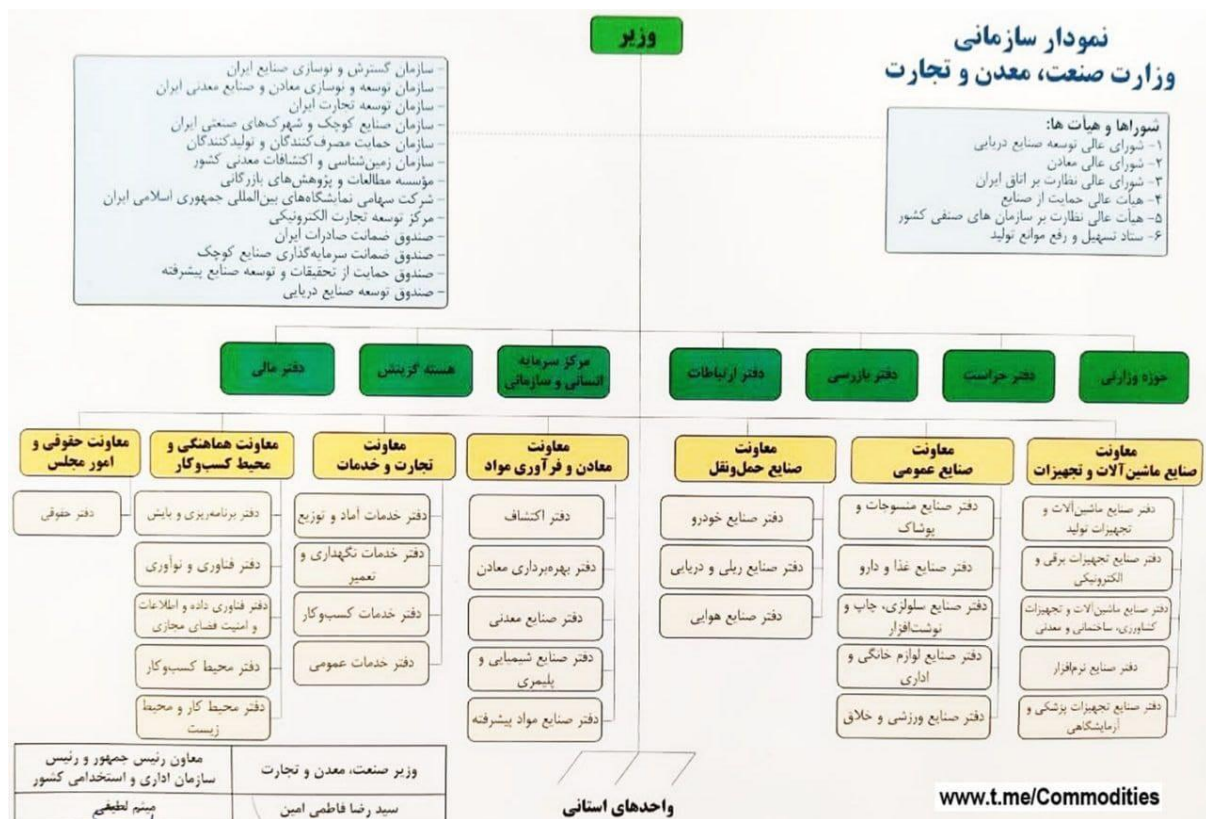 نمودار سازمانی
وزارت صنعت، معدن و تجارت
وزیر
شوراها و هیأت ها:
۱- شورای عالی توسعه صنایع دریایی
۲- شورای عالی معادن
۳- شورای عالی نظارت بر اتاق ایران
۴- هیأت عالی حمایت از صنایع
۵- هیأت عالی نظارت بر سازمان های صنفی کشور
۶- ستاد تسهیل و رفع موانع تولید
- سازمان گسترش و نوسازی صنایع ایران
- سازمان توسعه و نوسازی معادن و صنایع معدنی ایران
- سازمان توسعه تجارت ایران
- سازمان صنایع کوچک و شهرک‌های صنعتی ایران
- سازمان حمایت مصرف‌کنندگان و تولیدکنندگان
- سازمان زمین‌شناسی و اکتشافات معدنی کشور
- مؤسسه مطالعات و پژوهش‌های بازرگانی
- شرکت سهامی نمایشگاه‌های بین‌المللی جمهوری اسلامی ایران
- مرکز توسعه تجارت الکترونیکی
- صندوق ضمانت صادرات ایران
- صندوق ضمانت سرمایه‌گذاری صنایع کوچک
- صندوق حمایت از تحقیقات و توسعه صنایع پیشرفته
- صندوق توسعه صنایع دریایی
حوزه وزارتی
دفتر حراست
دفتر بازرسی
دفتر ارتباطات
مرکز سرمایه
انسانی و سازمانی
هسته گزینش
دفتر مالی
معاونت
صنایع ماشین‌آلات و تجهیزات
دفتر صنایع ماشین‌آلات و
تجهیزات تولید
دفتر صنایع تجهیزات برقی و
الکترونیکی
دفتر صنایع ماشین‌آلات و تجهیزات
کشاورزی، ساختمانی و معدنی
دفتر صنایع نرم‌افزار
دفتر صنایع تجهیزات پزشکی و
آزمایشگاهی
معاونت
صنایع عمومی
دفتر صنایع منسوجات و
پوشاک
دفتر صنایع غذا و دارو
دفتر صنایع سلولزی، چاپ و
نوشت‌افزار
دفتر صنایع لوازم خانگی و
اداری
دفتر صنایع ورزشی و خلاق
معاونت
صنایع حمل‌ونقل
دفتر صنایع خودرو
دفتر صنایع ریلی و دریایی
دفتر صنایع هوایی
معاونت
معادن و فرآوری مواد
دفتر اکتشاف
دفتر بهره‌برداری معادن
دفتر صنایع معدنی
دفتر صنایع شیمیایی و
پلیمری
دفتر صنایع مواد پیشرفته
معاونت
تجارت و خدمات
دفتر خدمات آماد و توزیع
دفتر خدمات نگهداری و
تعمیر
دفتر خدمات کسب‌وکار
دفتر خدمات عمومی
معاونت هماهنگی و
محیط کسب‌وکار
دفتر برنامه‌ریزی و پایش
دفتر فناوری و نوآوری
دفتر فناوری داده و اطلاعات
و امنیت فضای مجازی
دفتر محیط کسب‌وکار
دفتر محیط کار و محیط
زیست
معاونت حقوقی و
امور مجلس
دفتر حقوقی
واحدهای استانی
وزیر صنعت، معدن و تجارت
سید رضا فاطمی امین
معاون رئیس جمهور و رئیس
سازمان اداری و استخدامی کشور
میثم لطیفی
www.t.me/Commodities